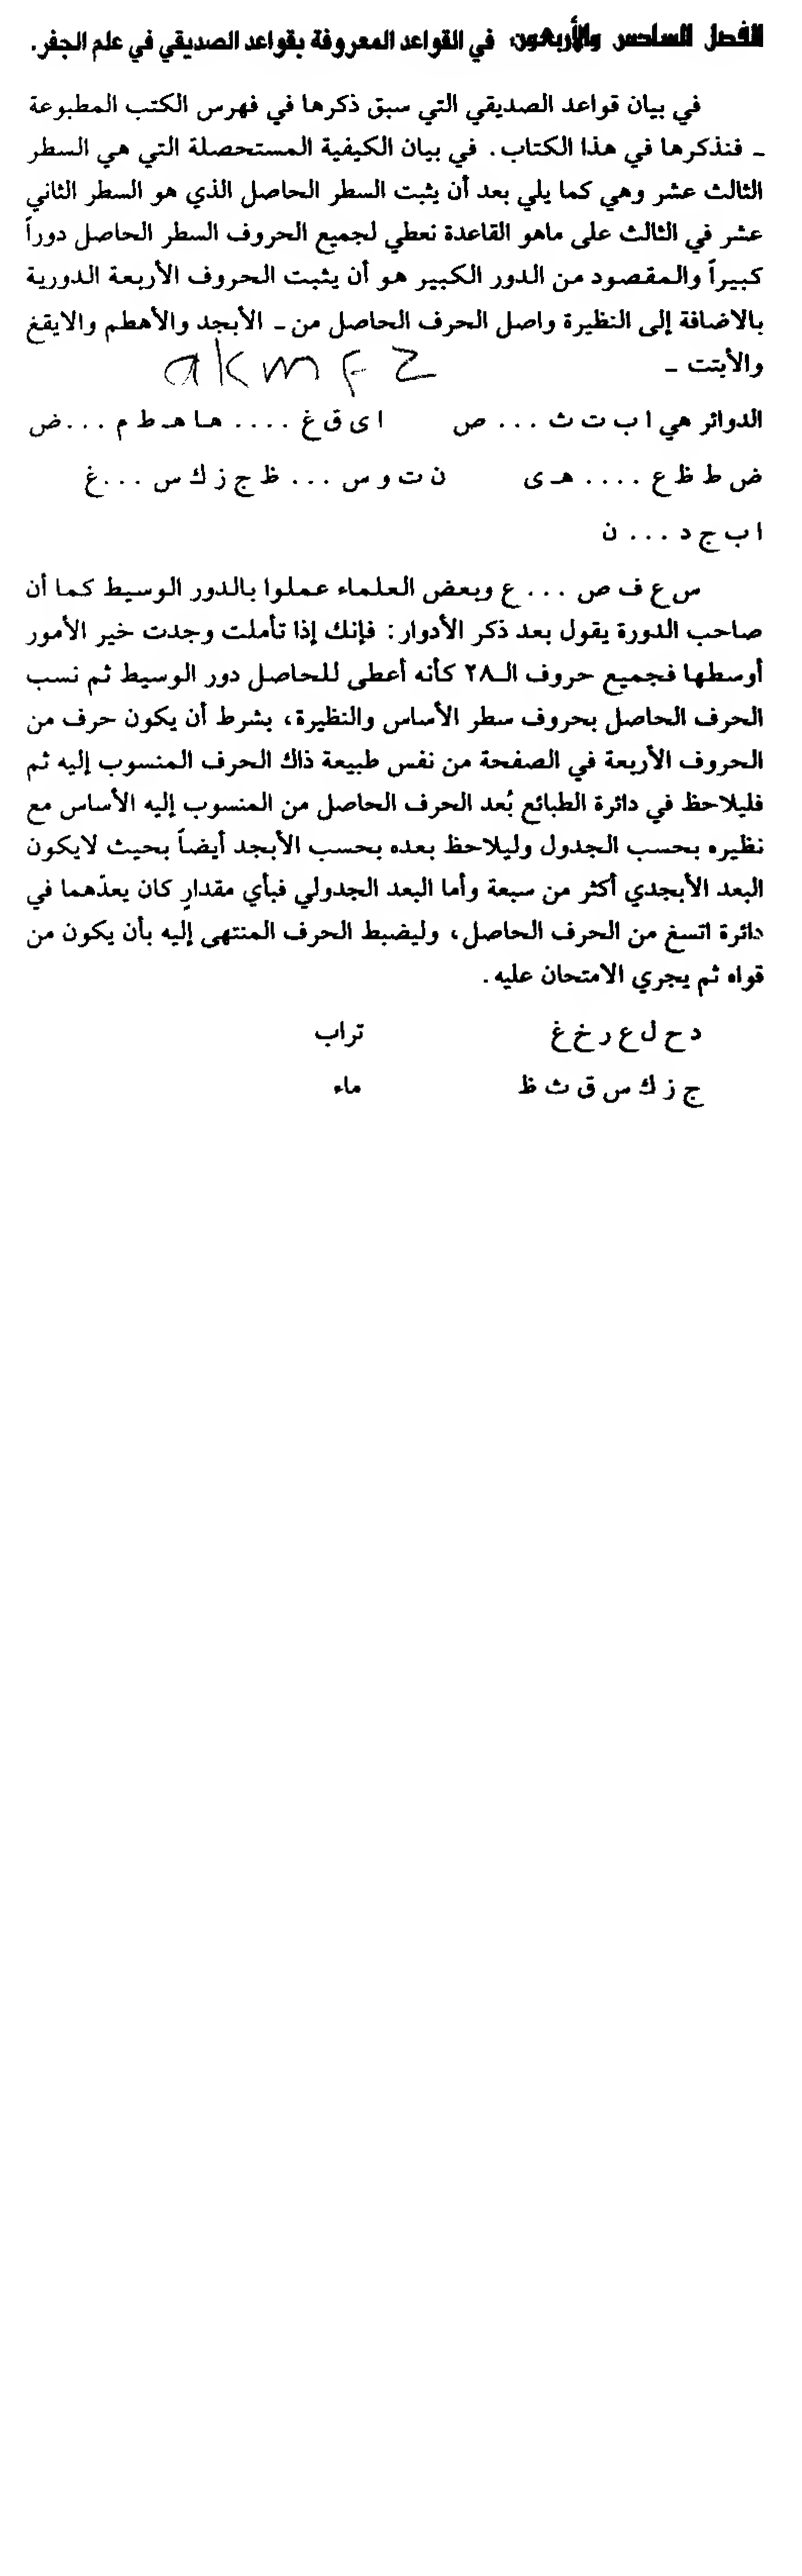 الفصل السادس والأربعون: في القواعد المعروفة بقواعد الصديقي في علم الجفر.
في بيان قواعد الصديقي التي سبق ذكرها في فهرس الكتب المطبوعة
ـ فنذكرها في هذا الكتاب. في بيان الكيفية المستحصلة التي هي السطر
الثالث عشر وهي كما يلي بعد أن يثبت السطر الحاصل الذي هو السطر الثاني
عشر في الثالث على ماهو القاعدة نعطي لجميع الحروف السطر الحاصل دوراً
كبيراً والمقصود من الدور الكبير هو أن يثبت الحروف الأربعة الدورية
بالاضافة إلى النظيرة واصل الحرف الحاصل من ـ الأبجد والأهطم والايقغ
والأبتت ـ
akmfz
الدوائر هي ا ب ت ث ... ص ا ى ق غ .... ها هـ ط م ...ض
ض ظ ط ع .... هـ ى ن ت و س ... ظ ج ز ك س ...غ
ا ب ج د ... ن
س ع ف ص ... ع وبعض العلماء عملوا بالدور الوسيط كما أن
صاحب الدورة يقول بعد ذكر الأدوار: فإنك إذا تأملت وجدت خير الأمور
أوسطها فجميع حروف الـ٢٨ كأنه أعطى للحاصل دور الوسيط ثم نسب
الحرف الحاصل بحروف سطر الأساس والنظيرة، بشرط أن يكون حرف من
الحروف الأربعة في الصفحة من نفس طبيعة ذاك الحرف المنسوب إليه ثم
فليلاحظ في دائرة الطبائع بُعد الحرف الحاصل من المنسوب إليه الأساس مع
نظيره بحسب الجدول وليلاحظ بعده بحسب الأبجد أيضاً بحيث لايكون
البعد الأبجدي أكثر من سبعة وأما البعد الجدولي فبأي مقدارٍ كان يعدّهما في
دائرة اتسغ من الحرف الحاصل، وليضبط الحرف المنتهى إليه بأن يكون من
قواه ثم يجري الامتحان عليه.
د ح ل ع ر خ غ تراب
ج ز ك س ق ث ظ ماء